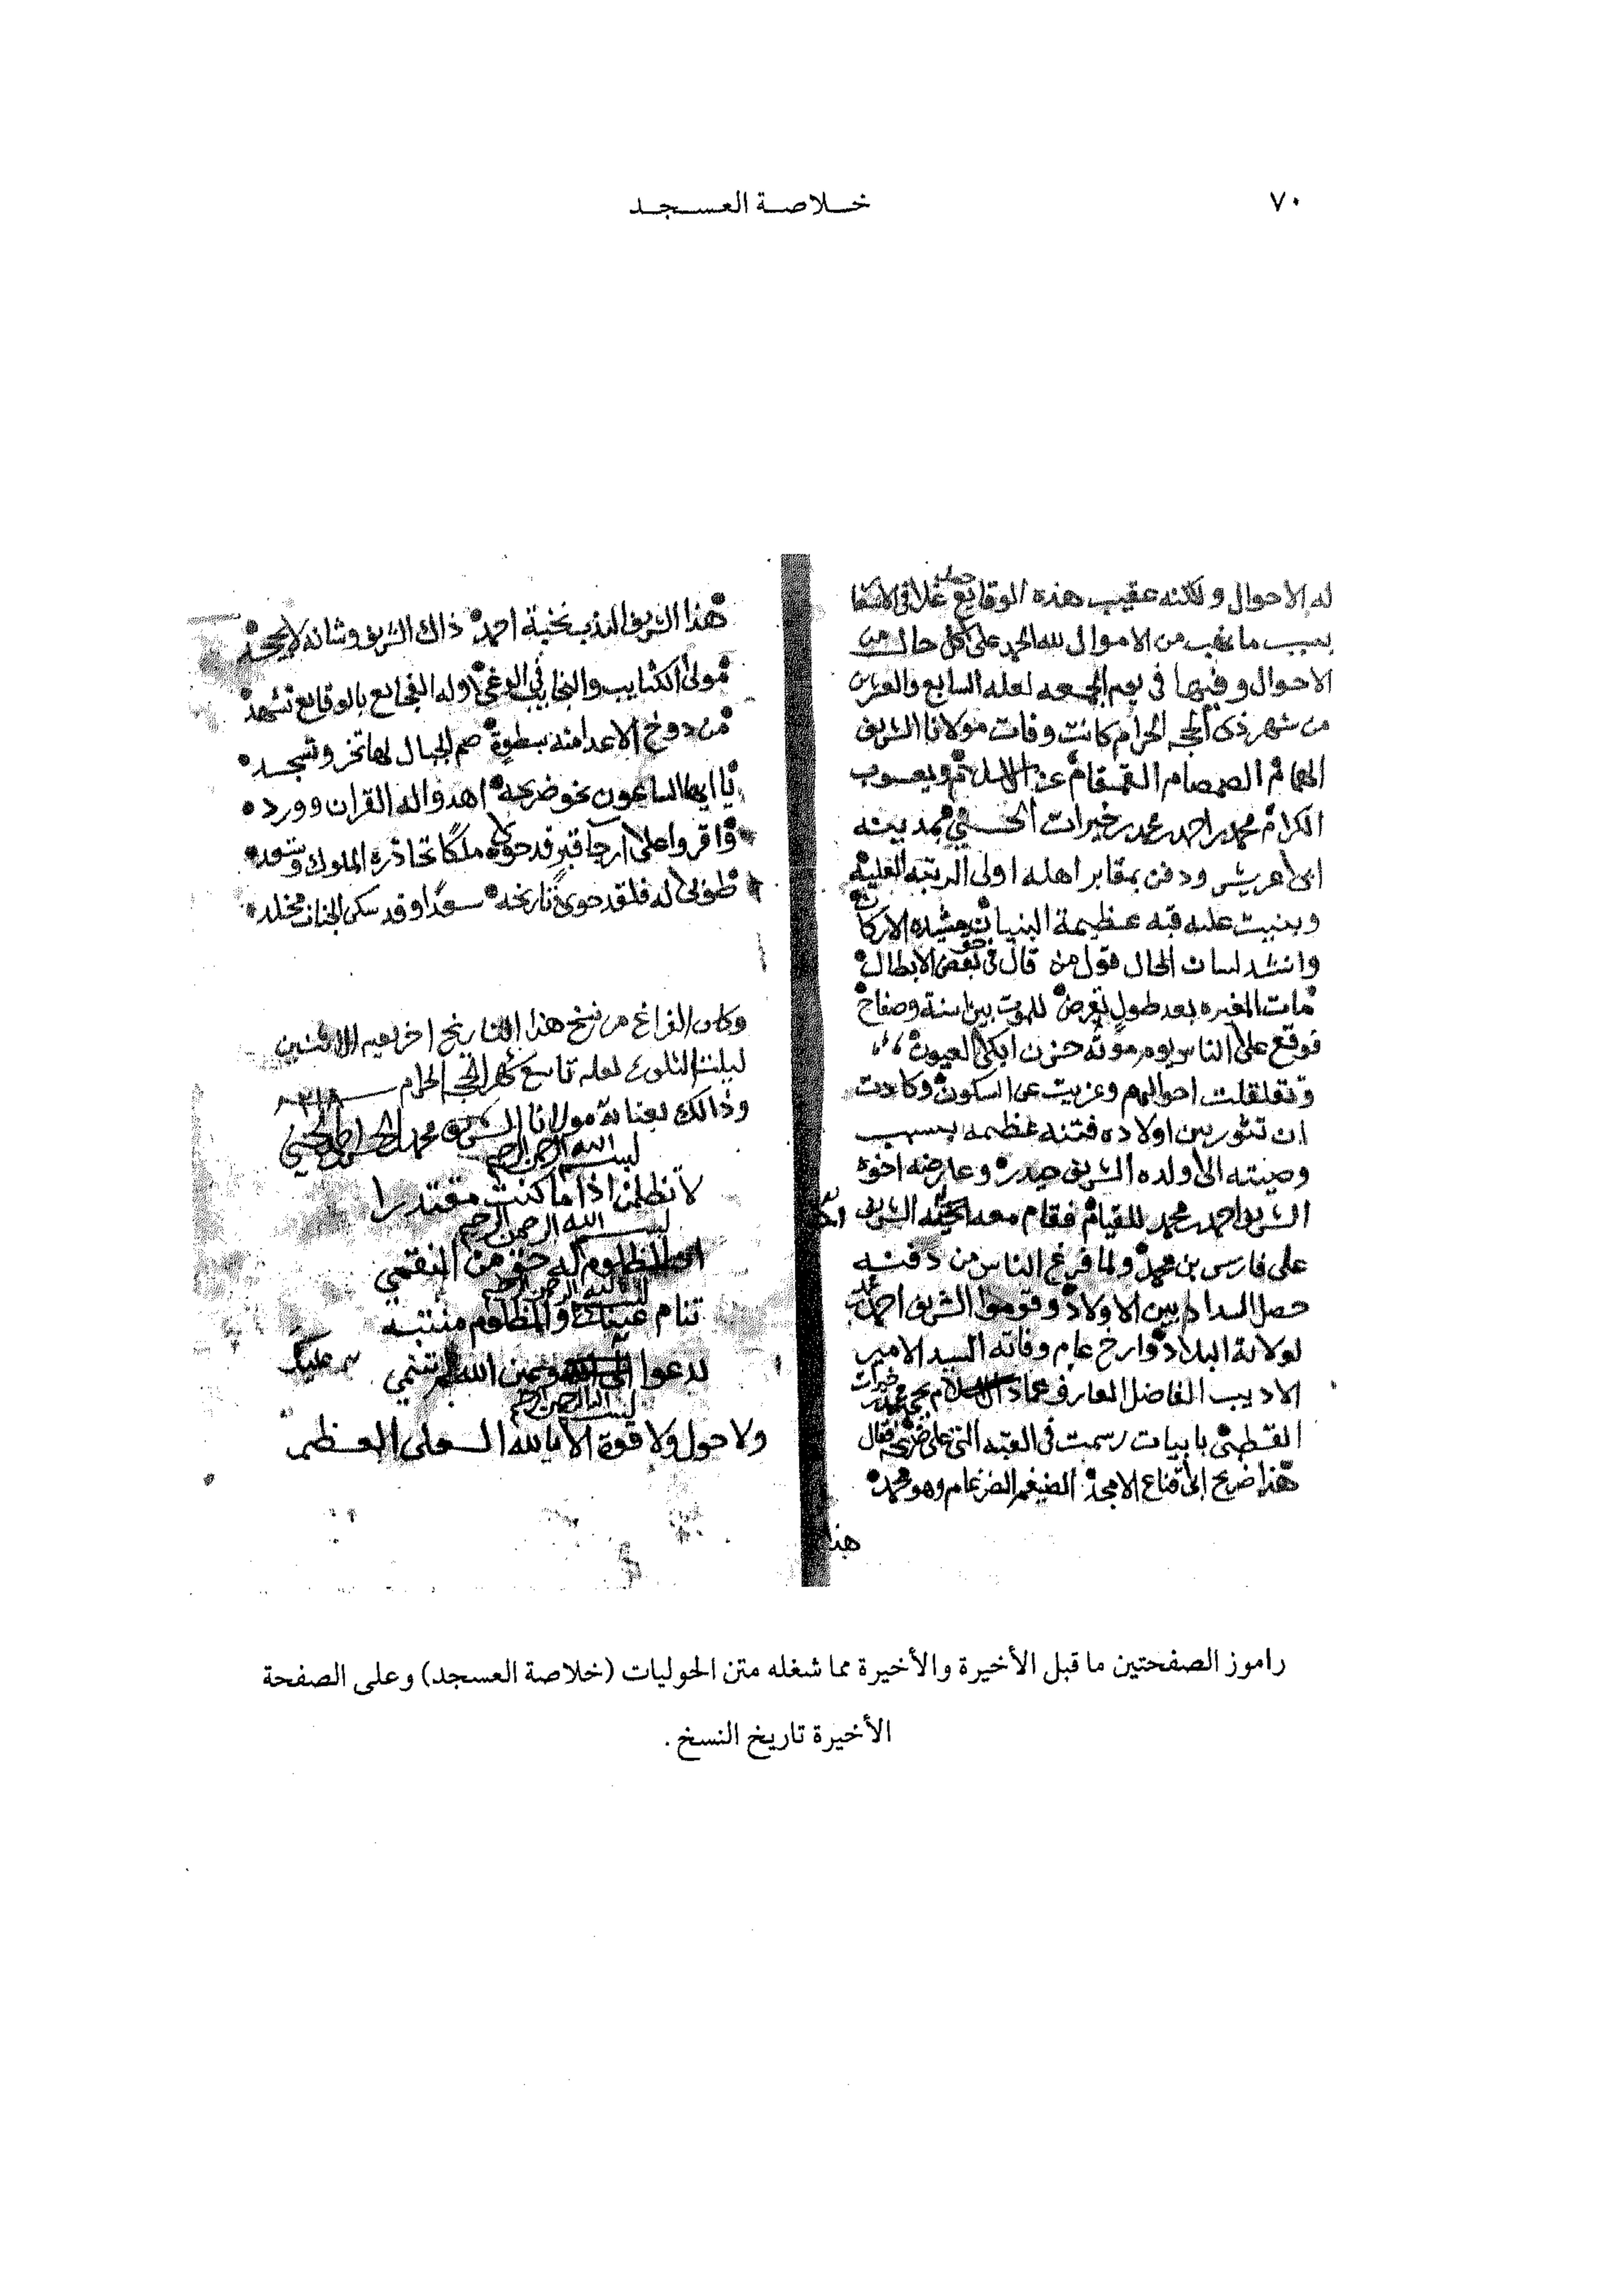 ٧٠
خلاصة العسجد
له الاحوال ولكنه عقيب هذه الوقايع حصل غلا فى الاسعا
بسبب ما نهب من الاموال لله الحمد على كل حال من
الاحوال وفيها فى يوم الجمعه لعله السابع والعشرين
من شهر ذى الحجه الحرام كانت وفات مولانا الشريف
الهمام الصمصام القمقام عز الاسلام ويعسوب
الكرام محمد بن احمد بن محمد بن خيرات الحسني بمدينه
ابى عريش ودفن بمقابر اهله اولى الرتبه العليه
وبنيت عليه قبه عظيمة البنيان مشيده الاركا
وانشد لسان الحال قول من قال فى بعض الابطال
مات المغيره بعد طول تعرض للموت بين اسنة وصفاح
فوقع على الناس يوم موته حزن ابكى العيون
وتقلقلت احوالهم وعزبت عن السكون وكادت
ان تثور بين اولاده فتنه عظيمه بسبب
وصيته الى ولده الشريف حيدر وعارضه اخوه
الشريف احمد بن محمد للقيام فقام معه الشريف
على فارس بن محمد ولما فرغ الناس من دفنه
حصل السداد بين الاولاد وقوموا الشريف احمد
لولاية البلاد وارخ عام وفاته السيد الامير
الاديب الفاضل العارف عماد الاسلام
القطبى بابيات رسمت فى القبه التى على ضريحه فقال
هذا ضريح الامجد الضيغم الضرغام وهو محمد
هذا
هذا الشريف الندب نخبة احمد ذاك الشريف وشانه لا يجحد
مولى الكتايب والنجايب فى الوغى وله الفجايع بالوقايع تشهد
من دوخ الاعدا منه بسطوة صم الجبال لها تخر وتسجد
يا ايها الساعون نحو ضريحه اهدوا له القران وورد
واقروا على ارجا قبر قد حوى ملكا تحاذره الملوك
طوبى له فلقد حوى تاريخه سعدا وقد سكن الجنان مخلد
وكان الفراغ من نسخ هذا التاريخ اخر يوم الاثنين
ليلت الثلوع لعله تاسع شهر الحجه الحرام
وذالك بعناية مولانا الشريف محمد
بسم الله الرحمن الرحيم
لا تظلمن اذا ما كنت مقتدرا
بسم الله الرحمن الرحيم
المظلوم له حق من النقمي
بسم الله الرحمن الرحيم
تنام عينك والمظلوم منتبه
يدعوا عليك وعين الله لم تنمي
بسم الله الرحمن الرحيم
ولا حول ولا قوة الا بالله العلى العظيم
راموز الصفحتين ما قبل الأخيرة والأخيرة مما شغله متن الحوليات (خلاصة العسجد) وعلى الصفحة
الأخيرة تاريخ النسخ .